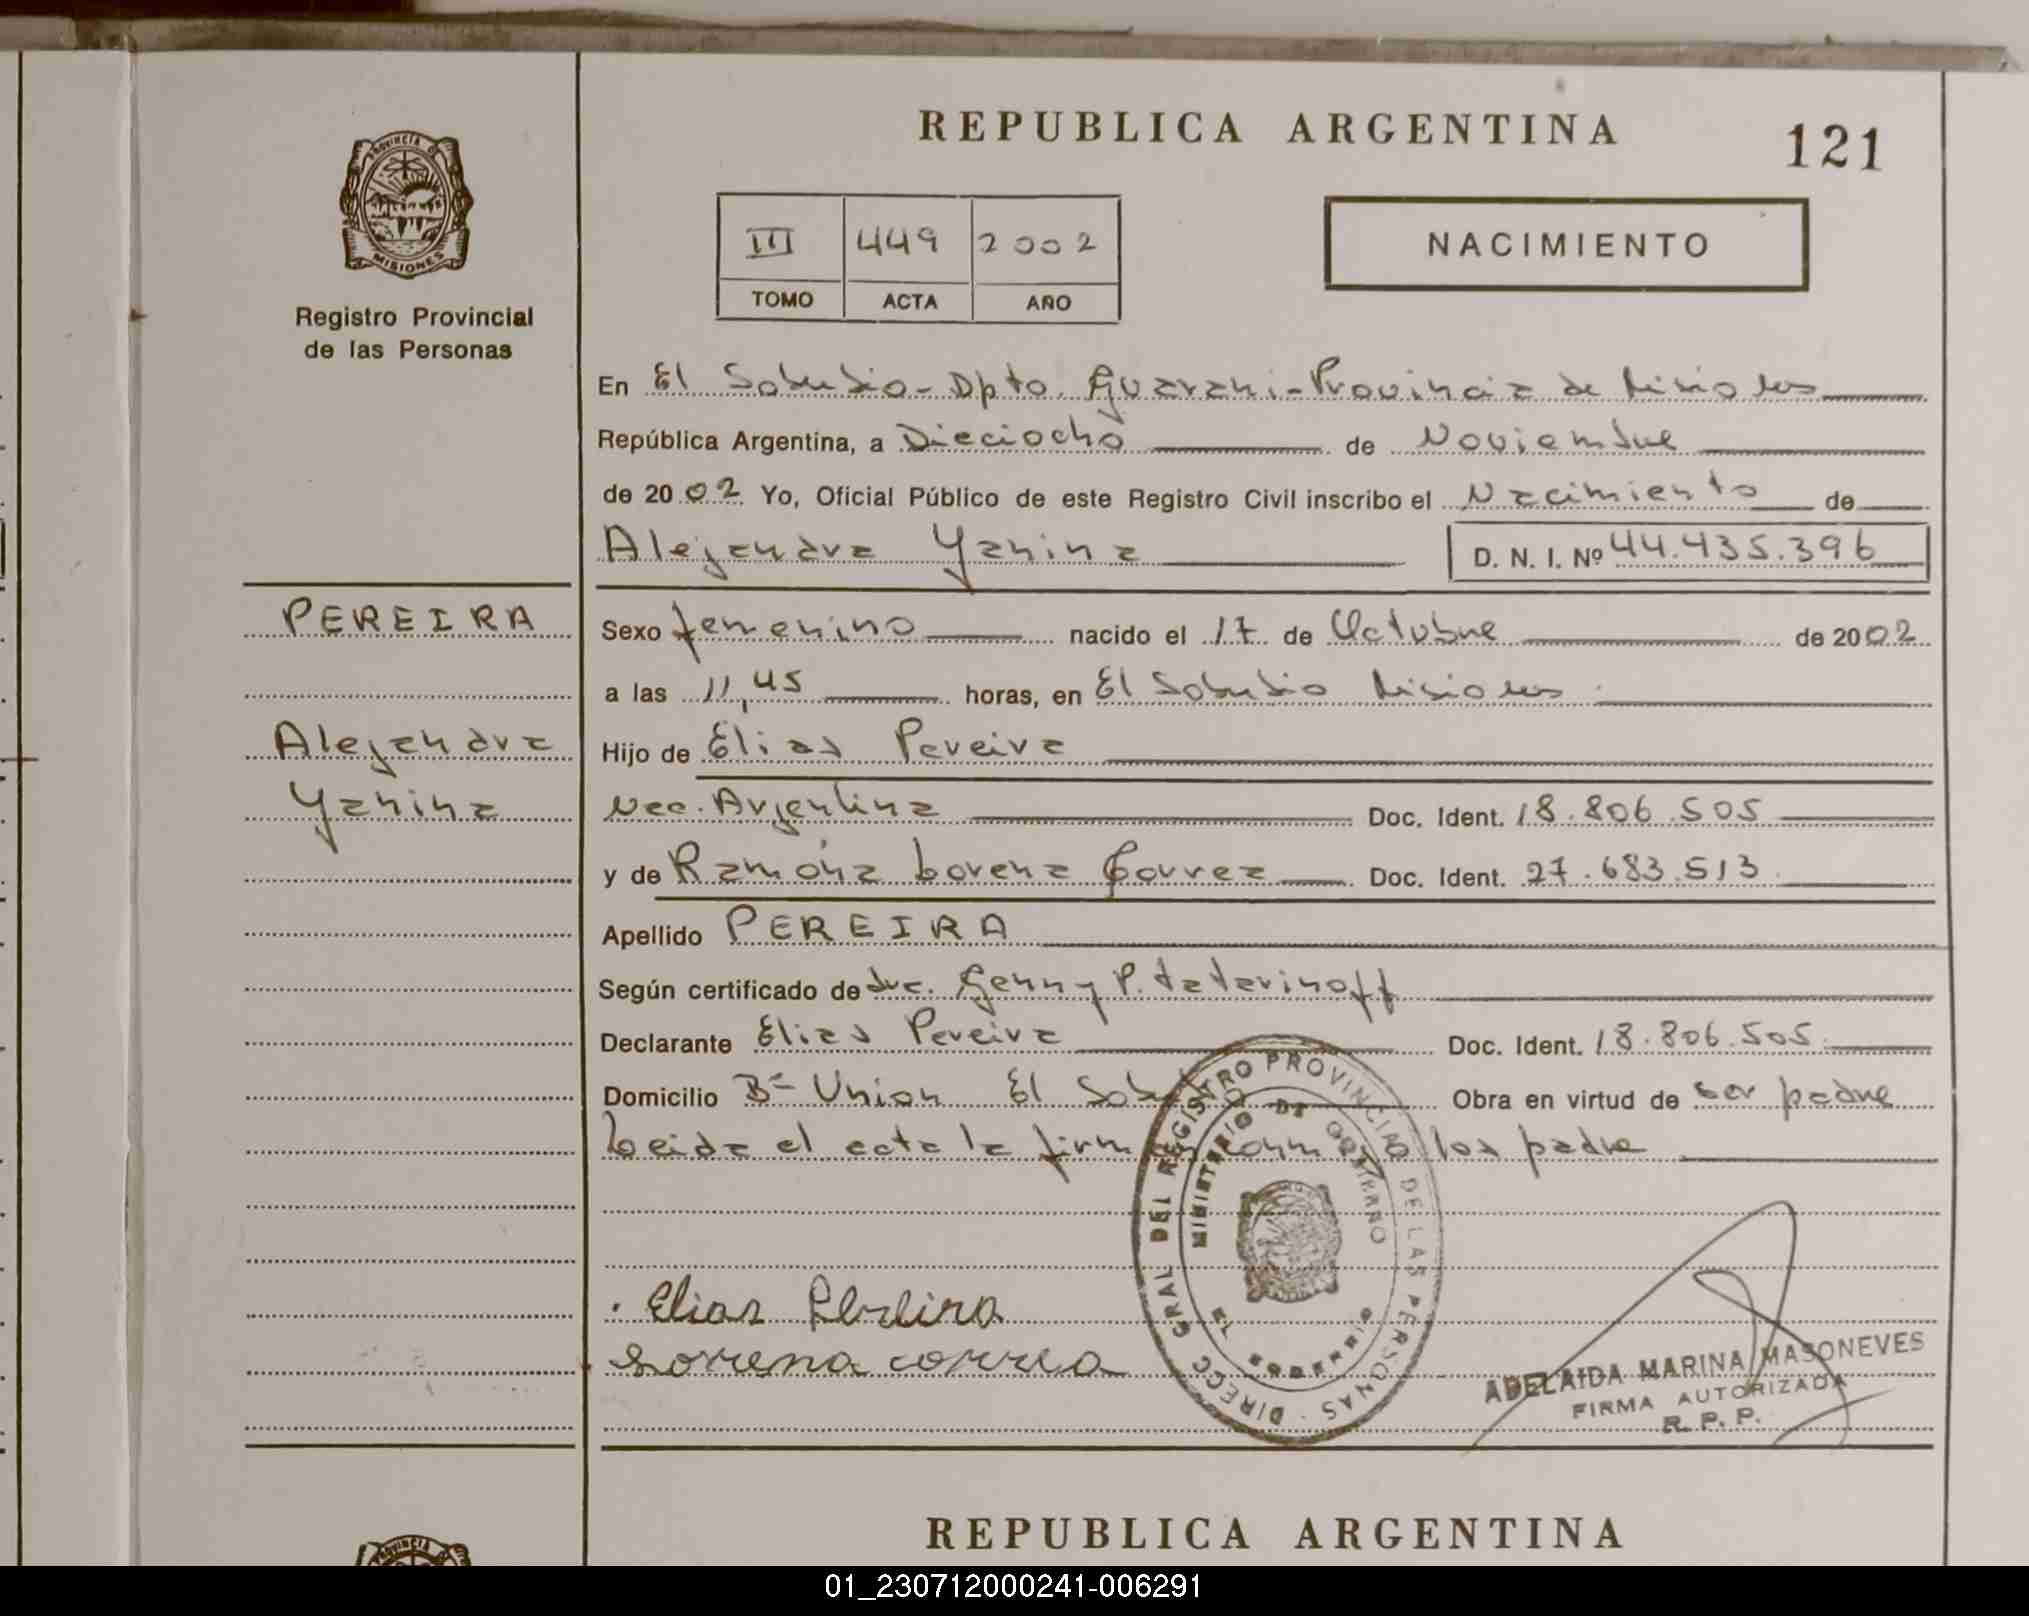 REPUBLICA ARGENTINA
121
PROVINCIA DE
MISIONES
Registro Provincial
de las Personas
III 449 2002
TOMO ACTA AÑO
NACIMIENTO
En El Soberbio - Dpto. Guarani - Provincia de Misiones
República Argentina, a Dieciocho de Noviembre
de 2002 Yo, Oficial Público de este Registro Civil inscribo el Nacimiento de
Alejandra Yanina D. N. I. Nº 44.435.396
PEREIRA
Alejandra
Yanina
Sexo femenino nacido el 17 de Octubre de 2002
a las 11,45 horas, en El Soberbio Misiones
Hijo de Elias Pereira
Nac. Argentina Doc. Ident. 18.806.505
y de Ramóna Lorena Correa Doc. Ident. 27.683.513
Apellido PEREIRA
Según certificado de dra. Genny P. Tatarinoff
Declarante Elias Pereira Doc. Ident. 18.806.505
Domicilio Bº Union El Soberbio Obra en virtud de ser padre
Leida el acta la firm los padre
DIRECC GRAL DEL REGISTRO PROVINCIAL DE LAS PERSONAS
MINISTERIO DE GOBIERNO
EL SOBERBIO
Elias Pereira
Lorena correa
ADELAIDA MARINA MASONEVES
FIRMA AUTORIZADA
R. P. P.
REPUBLICA ARGENTINA
PROVINCIA DE
01_230712000241-006291